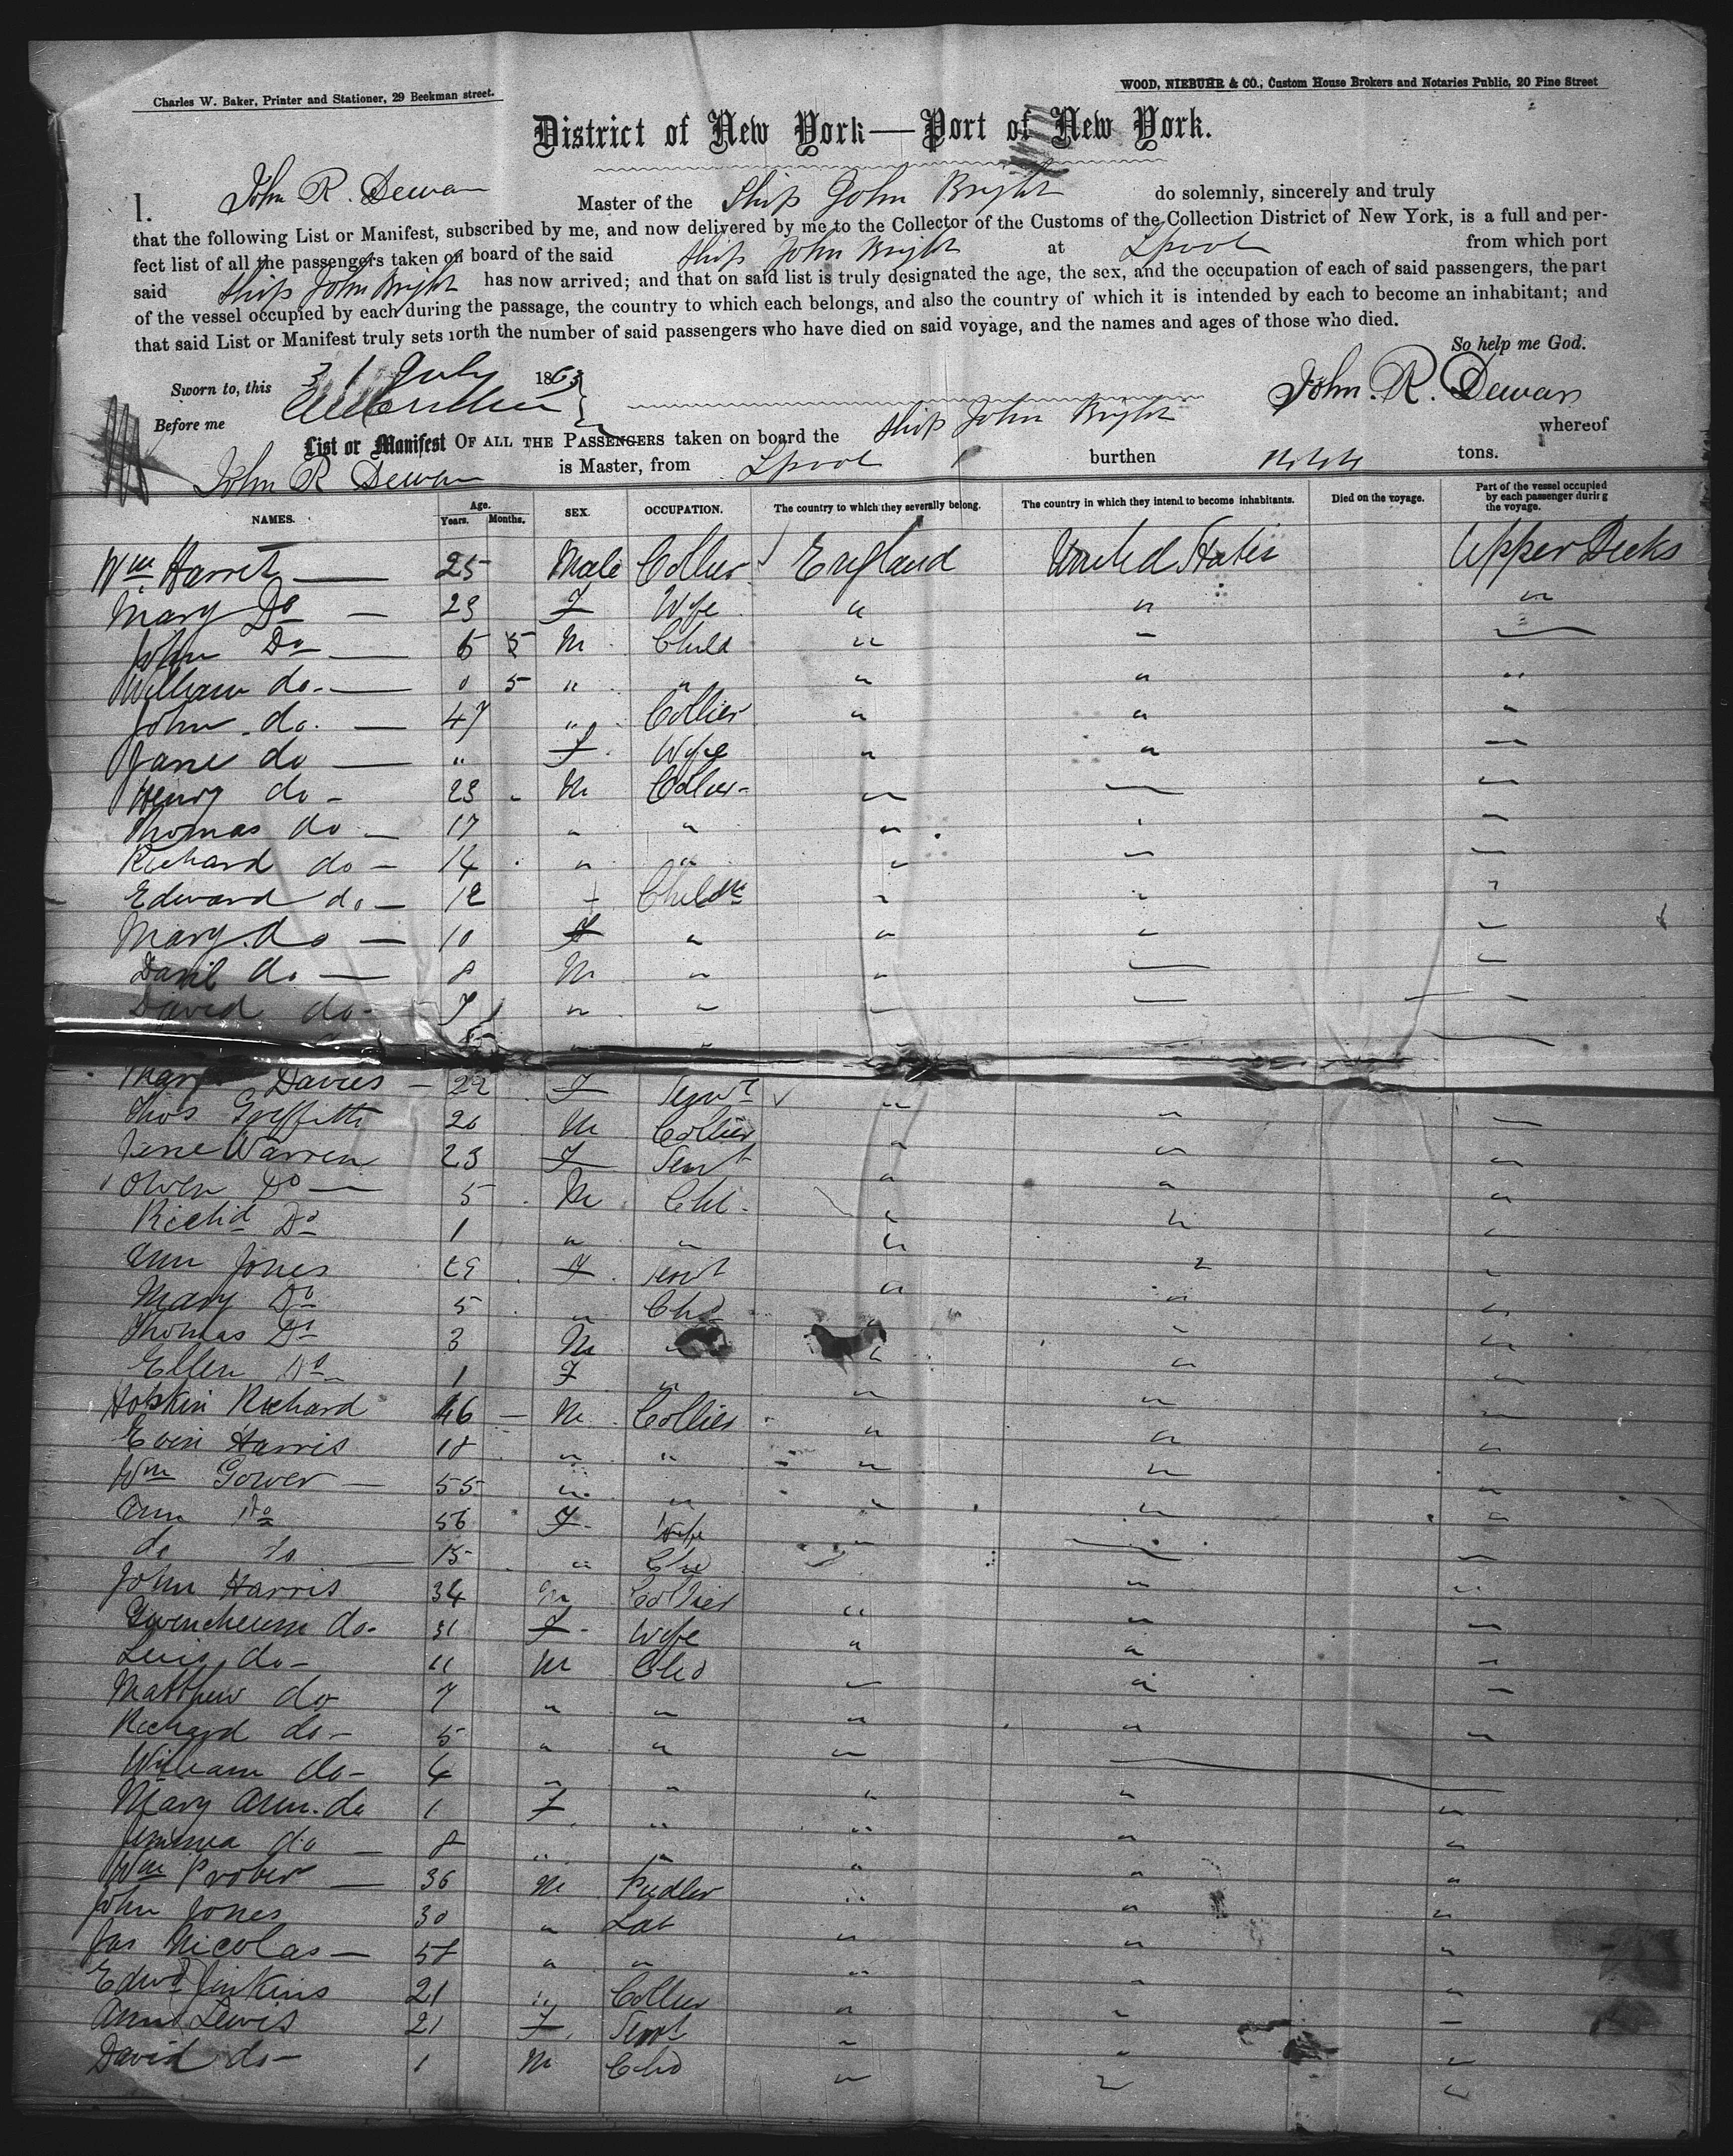 Charles W. Baker, Printer and Stationer, 29 Beekman street.
WOOD, NIEBUHR & CO., Custom House Brokers and Notaries Public, 20 Pine Street
District of New York—Port of New York.
I. John R. Dewan Master of the Ship John Bright do solemnly, sincerely and truly
that the following List or Manifest, subscribed by me, and now delivered by me to the Collector of the Customs of the Collection District of New York, is a full and per-
fect list of all the passengers taken on board of the said Ship John Bright at Lpool from which port
said Ship John Bright has now arrived; and that on said list is truly designated the age, the sex, and the occupation of each of said passengers, the part
of the vessel occupied by each during the passage, the country to which each belongs, and also the country of which it is intended by each to become an inhabitant; and
that said List or Manifest truly sets forth the number of said passengers who have died on said voyage, and the names and ages of those who died.
So help me God.
Sworn to, this 31 July 1863
John. R. Dewan
Before me
List or Manifest OF ALL THE PASSENGERS taken on board the Ship John Bright whereof
John R Dewan is Master, from Lpool burthen tons.
NAMES. Age. Years. Months. SEX. OCCUPATION. The country to which they severally belong. The country in which they intend to become inhabitants. Died on the voyage. Part of the vessel occupied by each passenger during the voyage.
Wm Harris 25 Male Collier England United States Upper Decks
Mary Do 23 F Wife " " "
John Do 5 M Child " "
William do. 0 5 " " " " "
John do. 47 " Collier " " "
Jane do " F Wife " " "
Henry do 23 " M Collier " " "
Thomas do 17 " " " " "
Richard do 14 " " " " "
Edward do 12 " Childn " " "
Mary do 10 F " " " "
Danil do 8 M " " " "
David do 7 " " " " "
Mary Davies 22 F Servt " " "
Thos Griffiths 20 M Collier " " "
Jane Warren 23 F Servt " " "
Owen Do 5 M Chl. " " "
Richd Do 1 " " " " "
Ann Jones 29 F Servt " " "
Mary Do 5 " Chd " " "
Thomas Do 3 M " " " "
Ellen Do 1 F " " " "
Hopkin Richard 46 M Collier " " "
Even Harris 18 " " " " "
Wm Gower 55 " " " " "
Ann Do 56 F Wife " " "
do do 15 " Chd " "
John Harris 34 M Collier " " "
do. 31 F Wife " " "
Lewis do 11 M Chd " " "
Matthew do 7 " " " " "
Richard do 5 " " " "
William do 4 " " " " "
Mary Ann. do 1 F " " " "
Jemima do 8 " " " " "
Wm Prober 36 M Pudler " " "
John Jones 30 " Lab " " "
Jas Nicolas 58 " " " " "
Edwd Jinkins 21 " Collier " " "
Ann Lewis 21 F. Servt " " "
David do 1 M Chd " " "